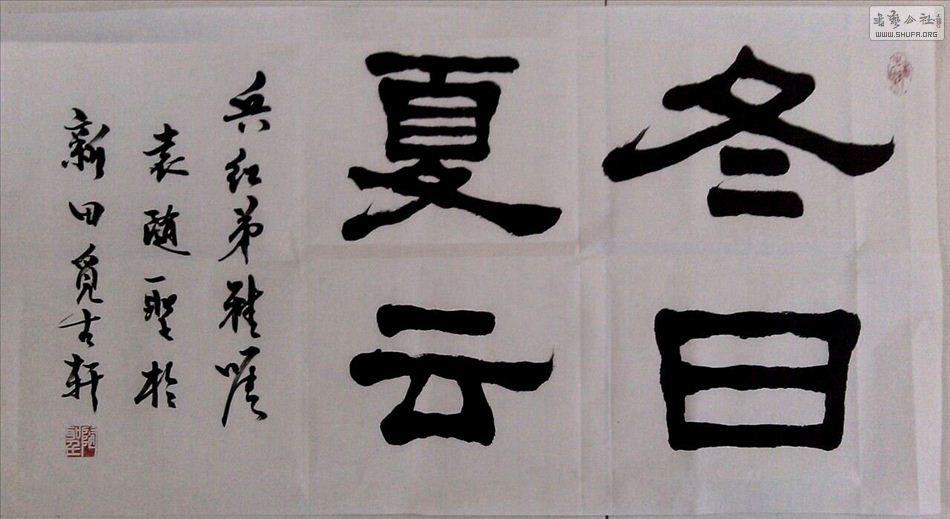 冬日
夏云
兵红弟雅嘱
袁随圣於
新田觅古轩
書藝公社
WWW.SHUFA.ORG